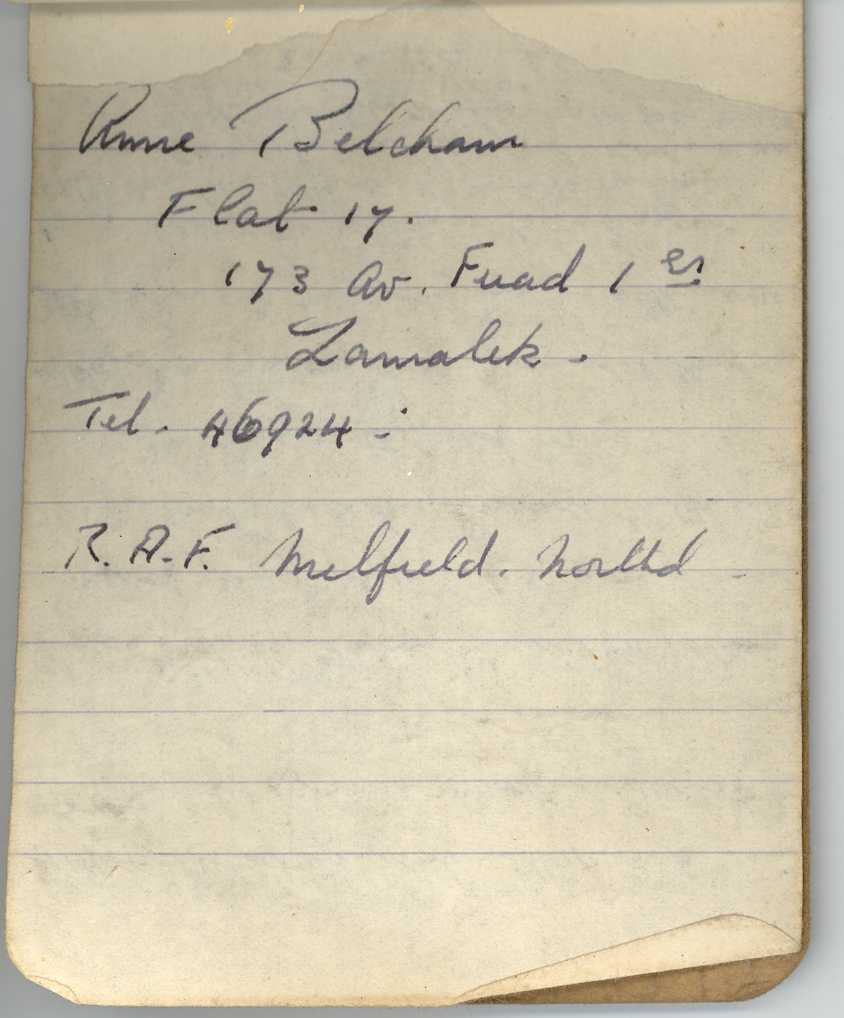 Anne Belcham
Flat 17.
173 Av. Fuad 1er
Zamalek.
Tel. 46924 -
R.A.F. Milfield. Northd